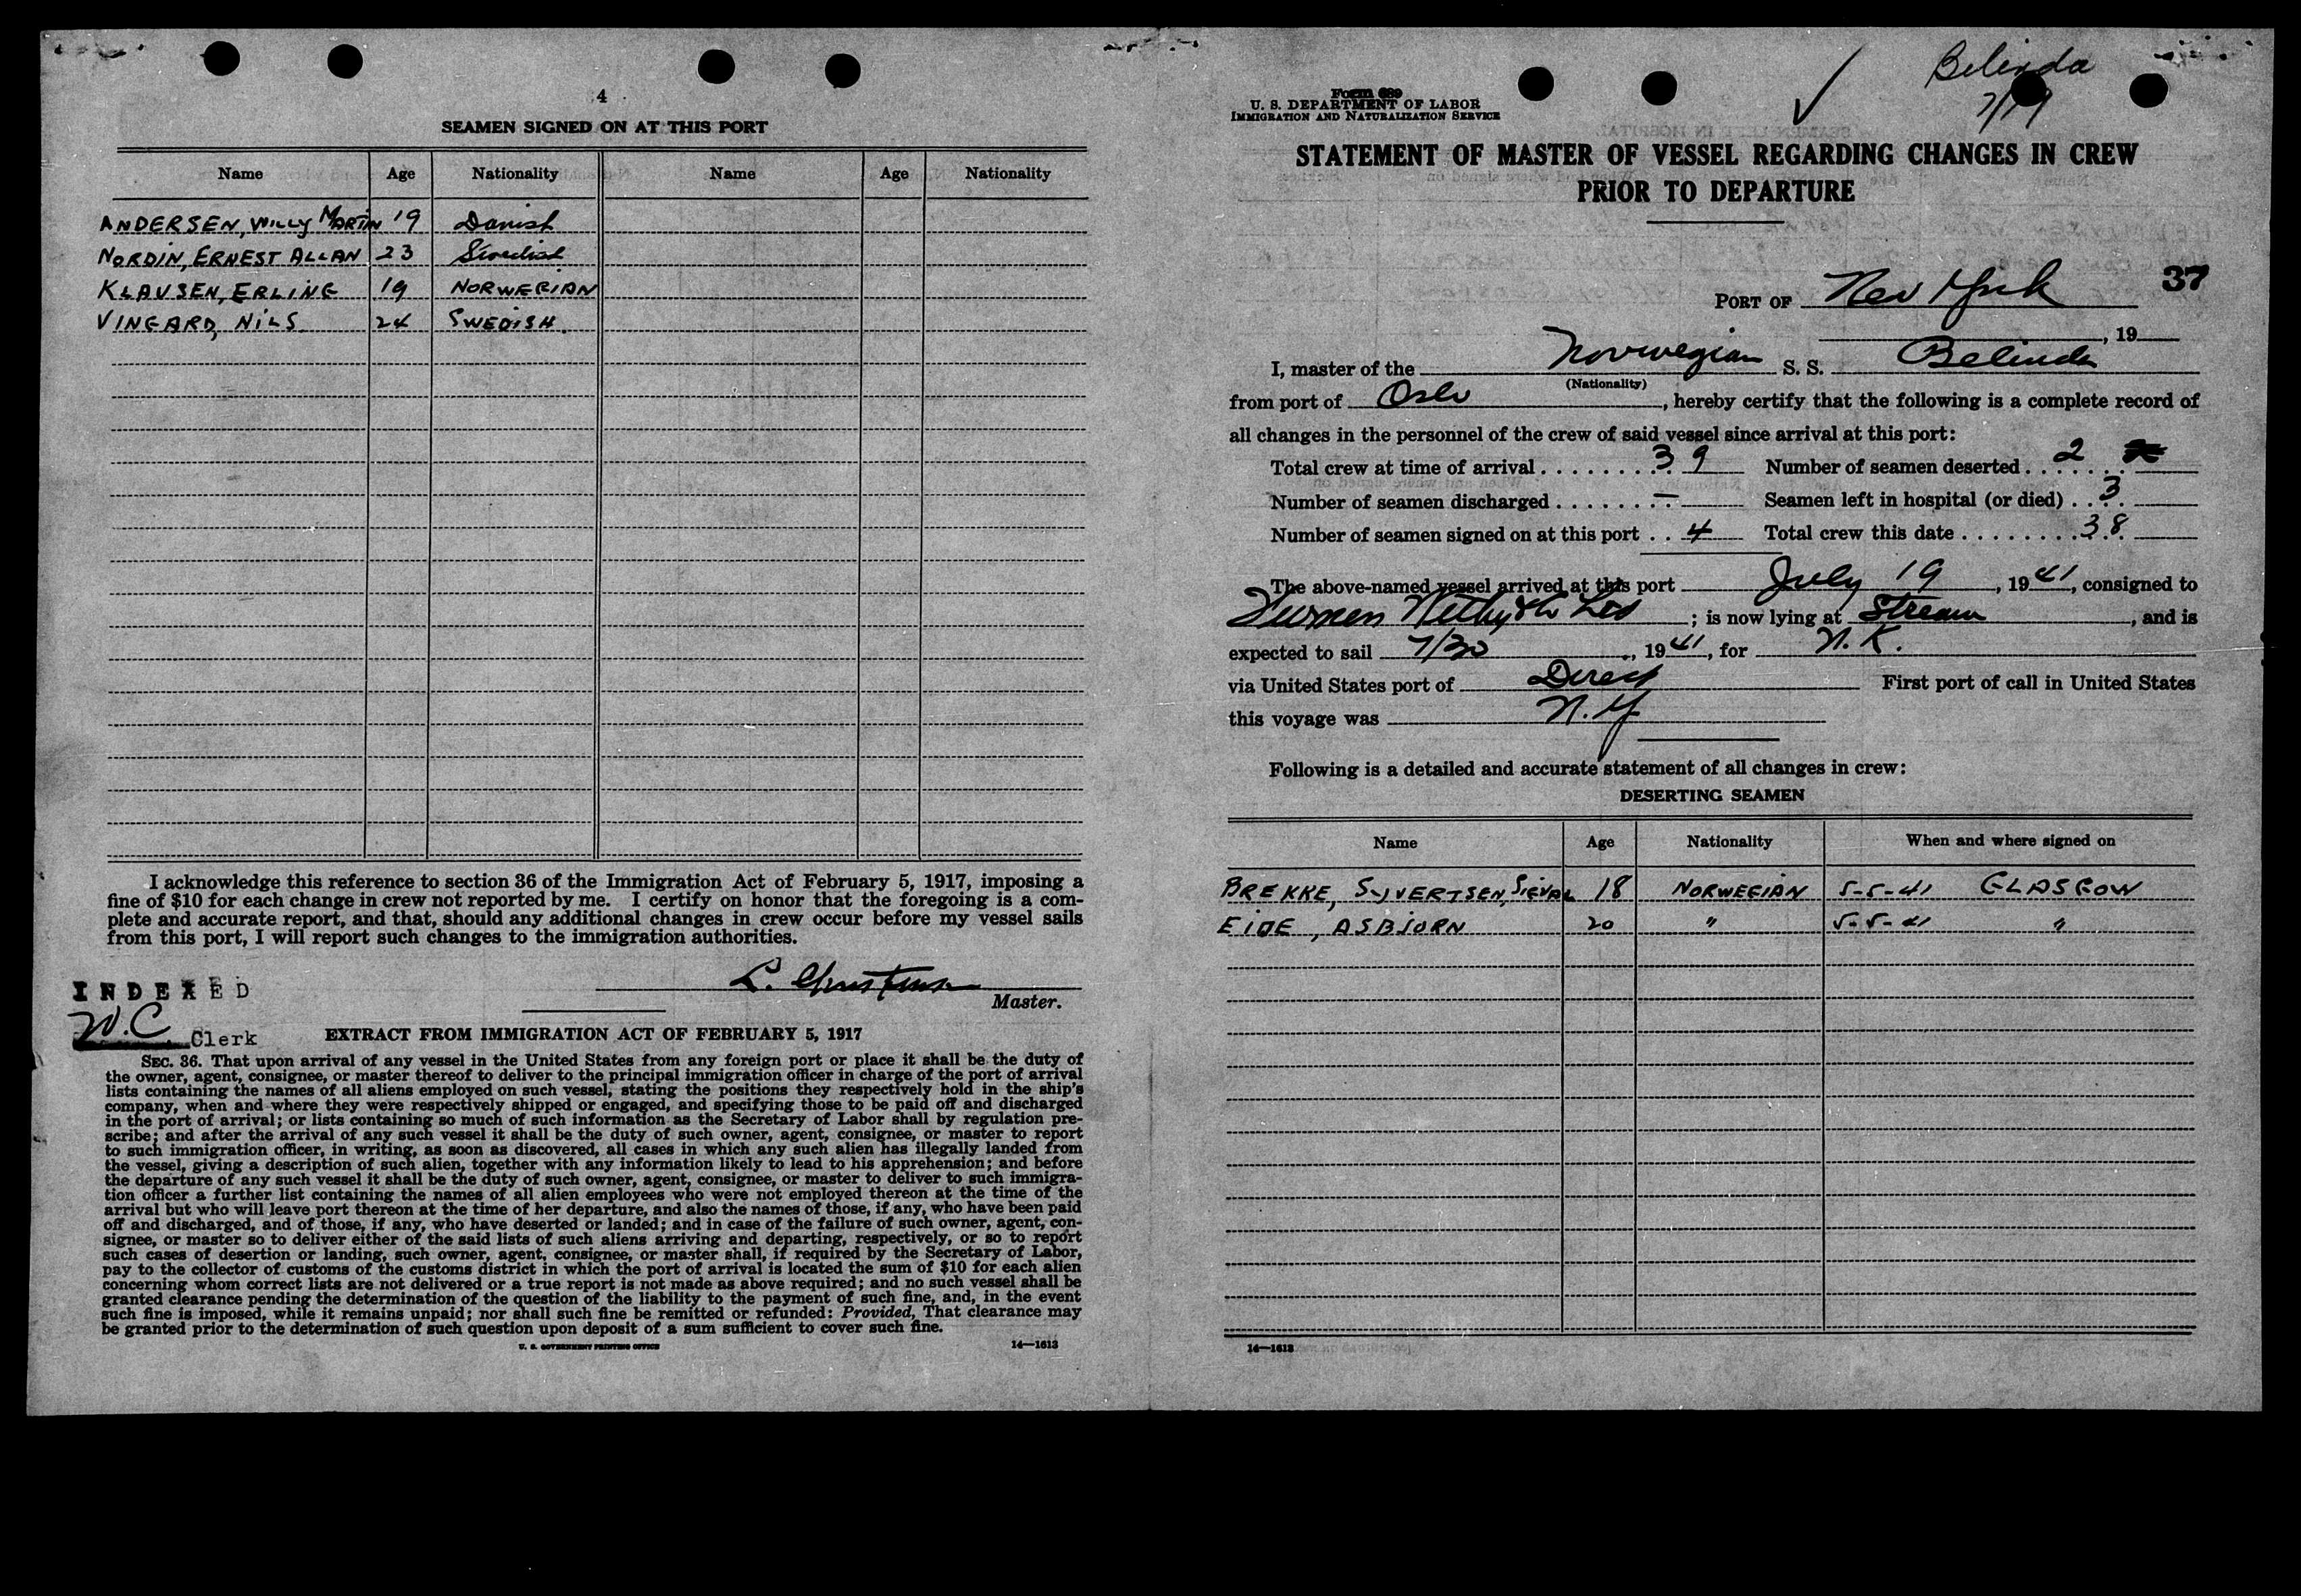 4
SEAMEN SIGNED ON AT THIS PORT
Name Age Nationality Name Age Nationality
ANDERSEN, WILLY MARTIN 19 Danish
NORDIN, ERNEST ALLAN 23 Swedish
KLAUSEN, ERLING 19 NORWEGIAN
VINGARD, NILS 24 SWEDISH.
I acknowledge this reference to section 36 of the Immigration Act of February 5, 1917, imposing a
fine of $10 for each change in crew not reported by me. I certify on honor that the foregoing is a com-
plete and accurate report, and that, should any additional changes in crew occur before my vessel sails
from this port, I will report such changes to the immigration authorities.
Master.
INDEXED
W.C. Clerk
EXTRACT FROM IMMIGRATION ACT OF FEBRUARY 5, 1917
SEC. 36. That upon arrival of any vessel in the United States from any foreign port or place it shall be the duty of
the owner, agent, consignee, or master thereof to deliver to the principal immigration officer in charge of the port of arrival
lists containing the names of all aliens employed on such vessel, stating the positions they respectively hold in the ship's
company, when and where they were respectively shipped or engaged, and specifying those to be paid off and discharged
in the port of arrival; or lists containing so much of such information as the Secretary of Labor shall by regulation pre-
scribe; and after the arrival of any such vessel it shall be the duty of such owner, agent, consignee, or master to report
to such immigration officer, in writing, as soon as discovered, all cases in which any such alien has illegally landed from
the vessel, giving a description of such alien, together with any information likely to lead to his apprehension; and before
the departure of any such vessel it shall be the duty of such owner, agent, consignee, or master to deliver to such immigra-
tion officer a further list containing the names of all alien employees who were not employed thereon at the time of the
arrival but who will leave port thereon at the time of her departure, and also the names of those, if any, who have been paid
off and discharged, and of those, if any, who have deserted or landed; and in case of the failure of such owner, agent, con-
signee, or master so to deliver either of the said lists of such aliens arriving and departing, respectively, or so to report
such cases of desertion or landing, such owner, agent, consignee, or master shall, if required by the Secretary of Labor,
pay to the collector of customs of the customs district in which the port of arrival is located the sum of $10 for each alien
concerning whom correct lists are not delivered or a true report is not made as above required; and no such vessel shall be
granted clearance pending the determination of the question of the liability to the payment of such fine, and, in the event
such fine is imposed, while it remains unpaid; nor shall such fine be remitted or refunded: Provided, That clearance may
be granted prior to the determination of such question upon deposit of a sum sufficient to cover such fine.
U. S. GOVERNMENT PRINTING OFFICE 14—1613
Belinda
7/19
Form 689
U. S. DEPARTMENT OF LABOR
IMMIGRATION AND NATURALIZATION SERVICE
STATEMENT OF MASTER OF VESSEL REGARDING CHANGES IN CREW
PRIOR TO DEPARTURE
37
PORT OF New York
, 19
I, master of the Norwegian S. S. Belinda
(Nationality)
from port of Oslo, hereby certify that the following is a complete record of
all changes in the personnel of the crew of said vessel since arrival at this port:
Total crew at time of arrival 39 Number of seamen deserted 2
Number of seamen discharged — Seamen left in hospital (or died) 3
Number of seamen signed on at this port 4 Total crew this date 38
The above-named vessel arrived at this port July 19, 1941, consigned to
; is now lying at Stream, and is
expected to sail 7/30, 1941, for
via United States port of Direct First port of call in United States
this voyage was N.Y
Following is a detailed and accurate statement of all changes in crew:
DESERTING SEAMEN
Name Age Nationality When and where signed on
BREKKE, SYVERTSEN, SIGVAL 18 NORWEGIAN 5-5-41 GLASGOW
EIDE, ASBJORN 20 " 5-5-41 "
14—1613